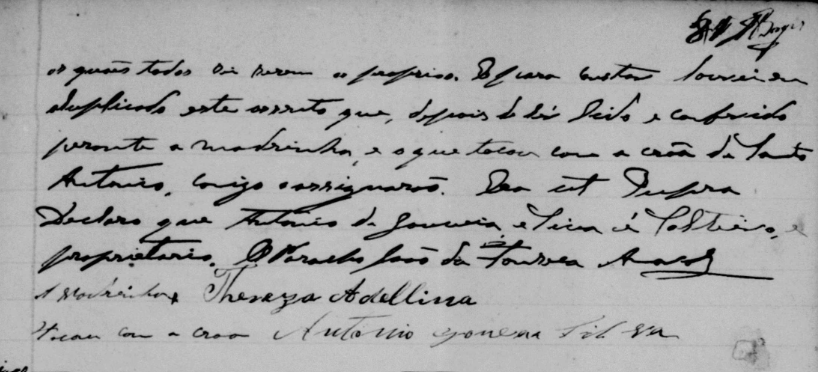 os quaes todos sei serem os proprios. E para constar lavrei em
duplicado este assento que, depois de ser lido e conferido
perante a madrinha, e o que tocou com a corôa de Santo
Antonio, comigo assignaram. Era ut supra
Declaro que Antonio de Gouveia e Silva é solteiro, e
proprietario. O Parocho João da Fonseca
A Madrinha, Thereza Adellina
Tocou com a croa Antonio gouveia Silva